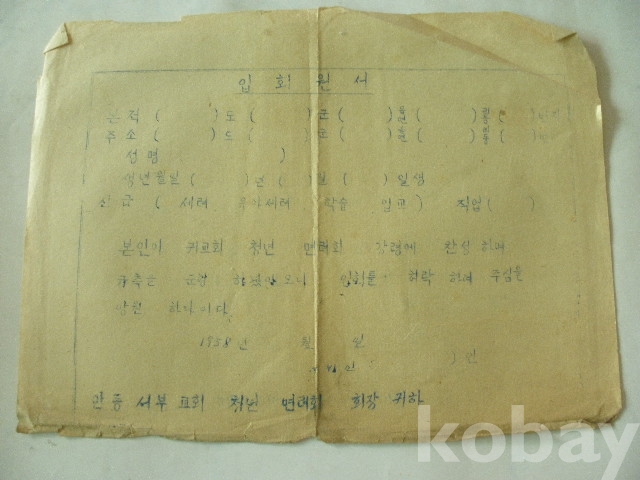 입 회 원 서
본 적 (          ) 도 (          ) 군 (          ) 면 (          )
주 소 (          ) 도 (          ) 군 (          ) 면 (          )
성 명                    )
생년월일 (          ) 년 (          ) 월 (          ) 일생
신 급 ( 세례 유아세례 학습 입교 ) 직업 (          )
본인이 귀교회 청년 면려회 강령에 찬성 하며
규측을 하겠아오니 입회를 허락 하여 주심을
앙원 하나이다
1958 년          월          일
인
관동 서부 교회 청년 면려회 회장 귀하
kobay